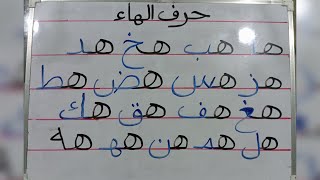 حرف الهاء
ها هب هخ هد
هز هس هض هط
هغ هف هق هك
هل هم هن هه